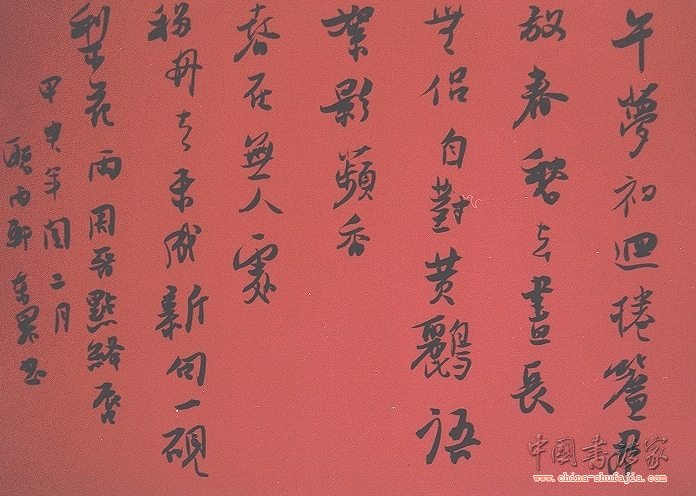 午夢初迴捲簾盡
放春愁去晝長
無侶自對黃鸝語
絮影蘋香
春在無人處
移舟去未成新句一硯
梨花雨周晉點絳唇
甲申年閏二月
軒 書
中國書法家
www.china-shufajia.com